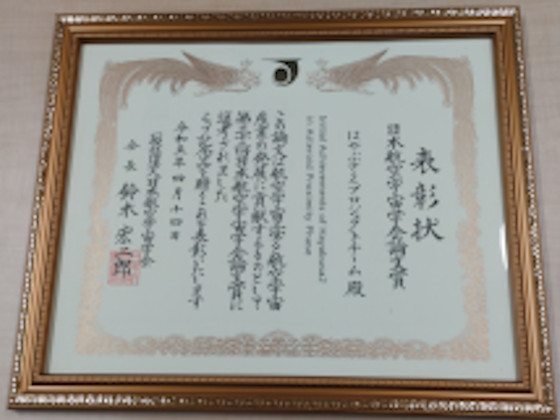 表彰状
日本航空宇宙学会論文賞
はやぶさ2プロジェクトチーム 殿
Initial Achievements of Hayabusa2
in Asteroid Proximity Phase
この論文は航空宇宙学会
産業の発展に貢献するものとして
日本航空宇宙学会論文賞に
選考されました
よって賞を贈りこれを表彰いたします
令和五年四月十四日
一般社団法人日本航空宇宙学会
会長 鈴木宏二郎